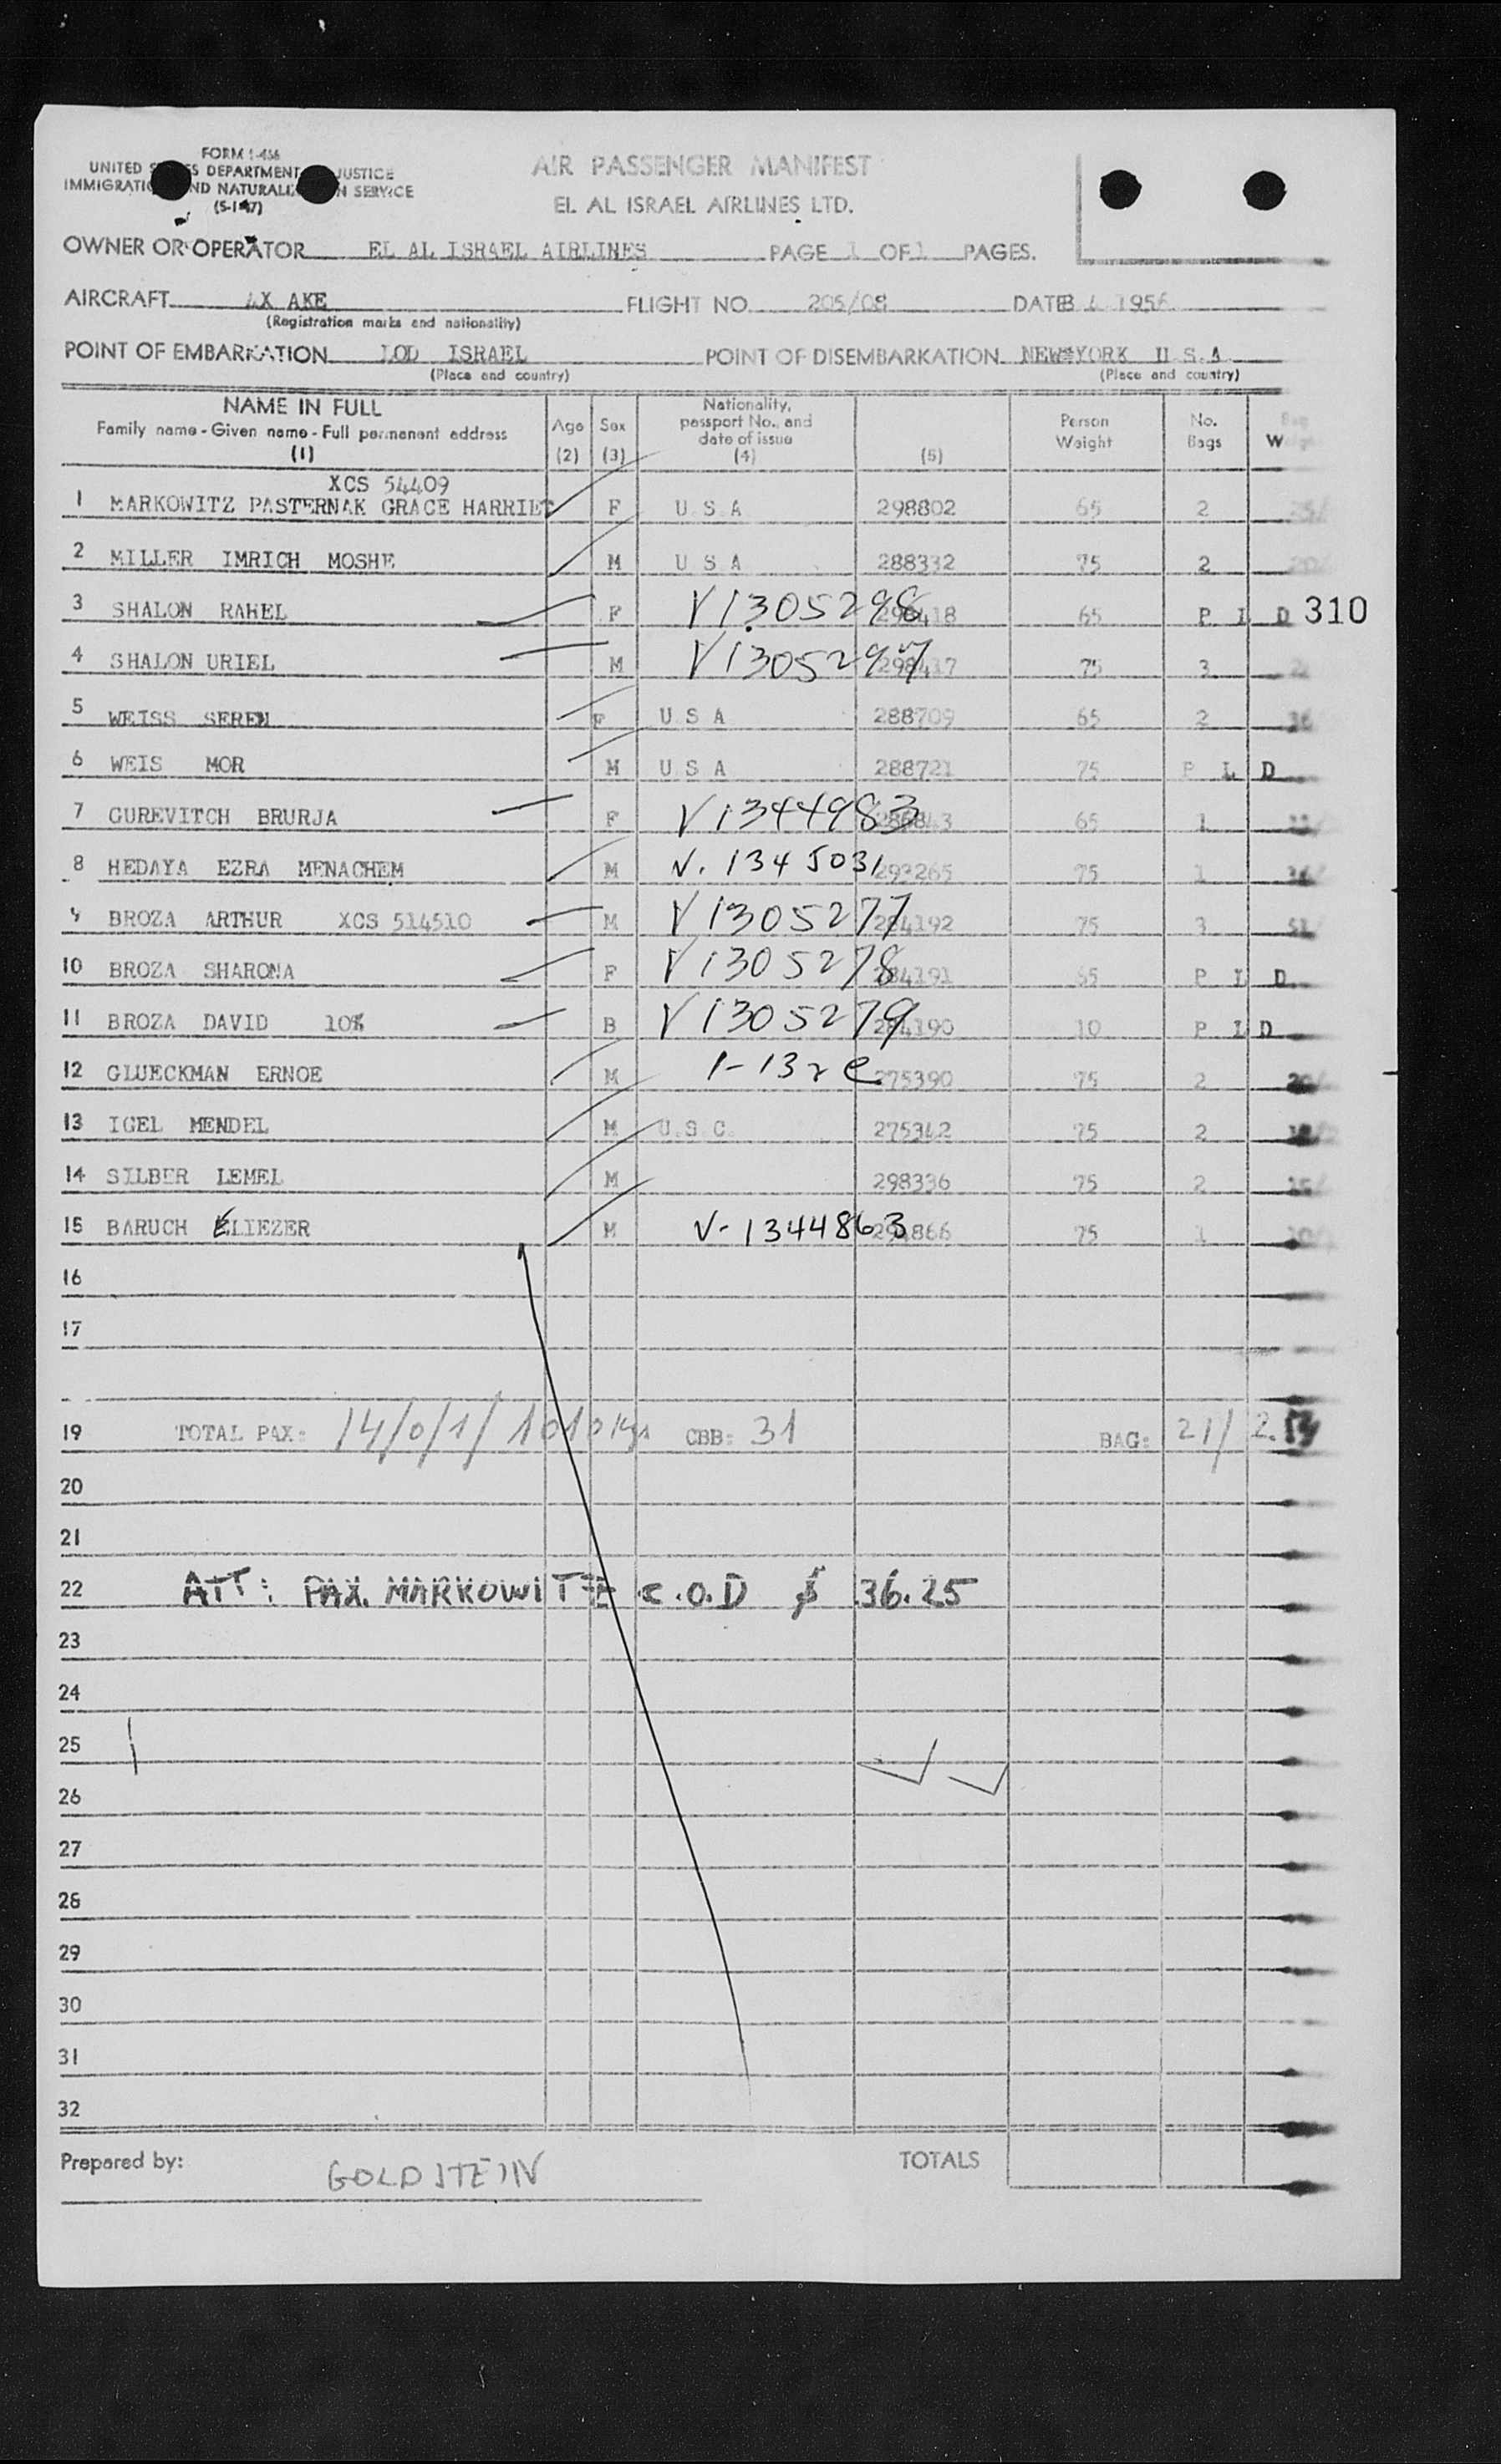 FORM I-466
UNITED S S DEPARTMENT JUSTICE
IMMIGRATIO ND NATURALI N SERVICE
(5-1-47)
AIR PASSENGER MANIFEST
EL AL ISRAEL AIRLINES LTD.
OWNER OR OPERATOR EL AL ISRAEL AIRLINES PAGE 1 OF 1 PAGES.
AIRCRAFT 4X AKE FLIGHT NO. 205/08 DATE 1956
(Registration marks and nationality)
POINT OF EMBARKATION LOD ISRAEL POINT OF DISEMBARKATION NEW YORK U.S.A
(Place and country) (Place and country)
NAME IN FULL
Family name - Given name - Full permanent address
(1)
Age
(2)
Sex
(3)
Nationality,
passport No., and
date of issue
(4)
(5)
Person
Weight
No.
Bags
Bag
Weight
XCS 54409
1 MARKOWITZ PASTERNAK GRACE HARRIET F U S A 298802 65 2 25/
2 MILLER IMRICH MOSHE M U S A 288332 75 2 20/
3 SHALON RAHEL F V1305298 298418 65 P L D 310
4 SHALON URIEL M V1305297 298417 75 3
5 WEISS SEREN F U S A 288709 65 2
6 WEIS MOR M U S A 288721 75 P L D
7 GUREVITCH BRURJA F V1344983 65 1
8 HEDAYA EZRA MENACHEM M V. 1345031 293265 75 1
9 BROZA ARTHUR XCS 514510 M V1305277 284192 75 3 51/
10 BROZA SHARONA F V1305278 284191 65 P L D
11 BROZA DAVID 10% B V1305279 284190 10 P L D
12 GLUECKMAN ERNOE M 275390 75 2 20/
13 IGEL MENDEL M U.S C. 275342 75 2
14 SILBER LEMEL M 298336 75 2
15 BARUCH ELIEZER M V-1344863 75 1
16
17
19 TOTAL PAX: 14/0/1/1010 kgs CBB: 31 BAG: 21/
20
21
22 ATT: PAX. MARKOWITZ C.O.D $ 36.25
23
24
25
26
27
28
29
30
31
32
Prepared by: GOLDSTEIN TOTALS